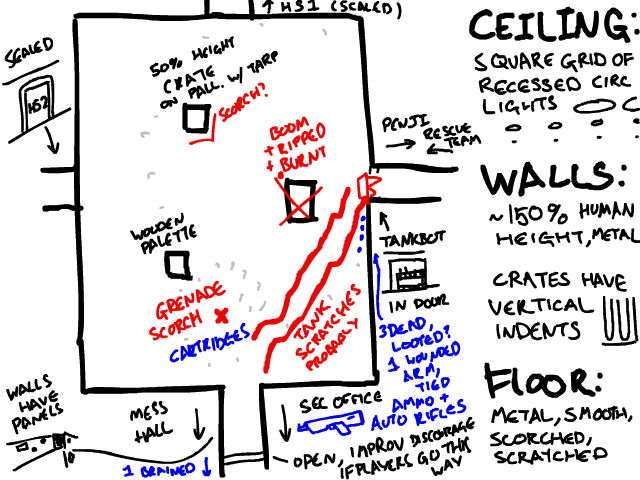 ↑ HS1 (SCALED)
CEILING:
SQUARE GRID OF
RECESSED CIRC
LIGHTS
SEALED
HS2
50% HEIGHT
CRATE
ON PALL. W/ TARP
SCORCH?
BOOM
+ RIPPED
+ BURNT
PENJI
RESCUE
TEAM
WALLS:
~150% HUMAN
HEIGHT, METAL
CRATES HAVE
VERTICAL
INDENTS
WOODEN
PALETTE
TANKBOT
IN DOOR
GRENADE
SCORCH x
CARTRIDGES
TANK
SCRATCHES
PROBABLY
3 DEAD,
LOOTED?
1 WOUNDED
ARM,
TIED
AMMO +
AUTO RIFLES
FLOOR:
METAL, SMOOTH,
SCORCHED,
SCRATCHED
WALLS
HAVE
PANELS
MESS
HALL
1 BRAINED ↓
SEC OFFICE
OPEN, IMPROV DISCOURAGE
IF PLAYERS GO THIS
WAY